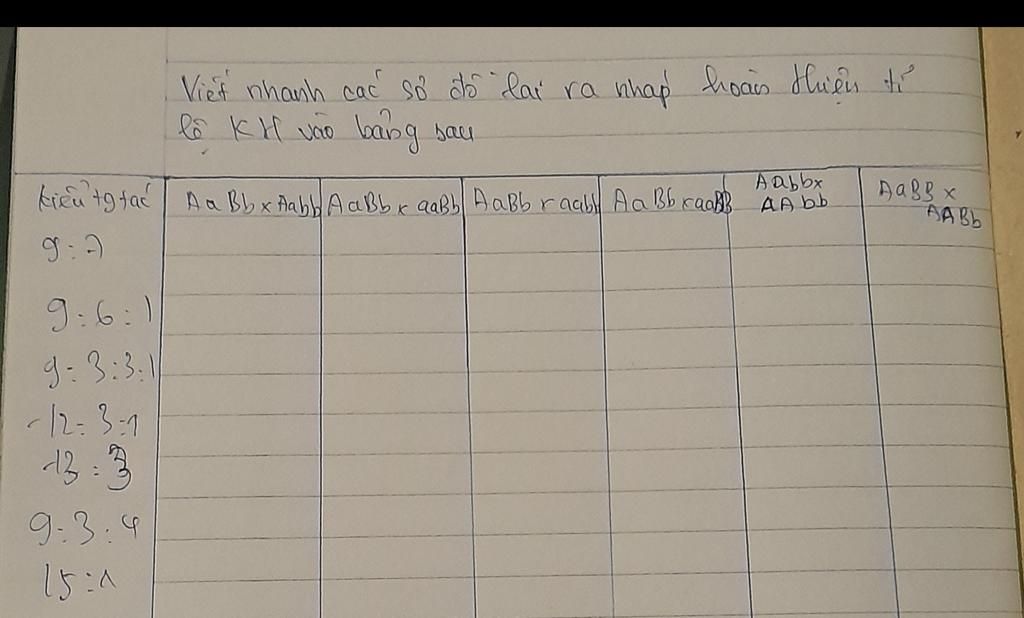 Viết nhanh các sơ đồ lai ra nháp hoàn thiện tỉ
lệ KH vào bảng sau
kiểu tg tác AaBb x Aabb AaBb x aaBb AaBb x aabb AaBb x aaBB Aabb x AAbb AaBB x AABb
9:7
9:6:1
9:3:3:1
-12:3:1
-13:3
9:3:4
15:1